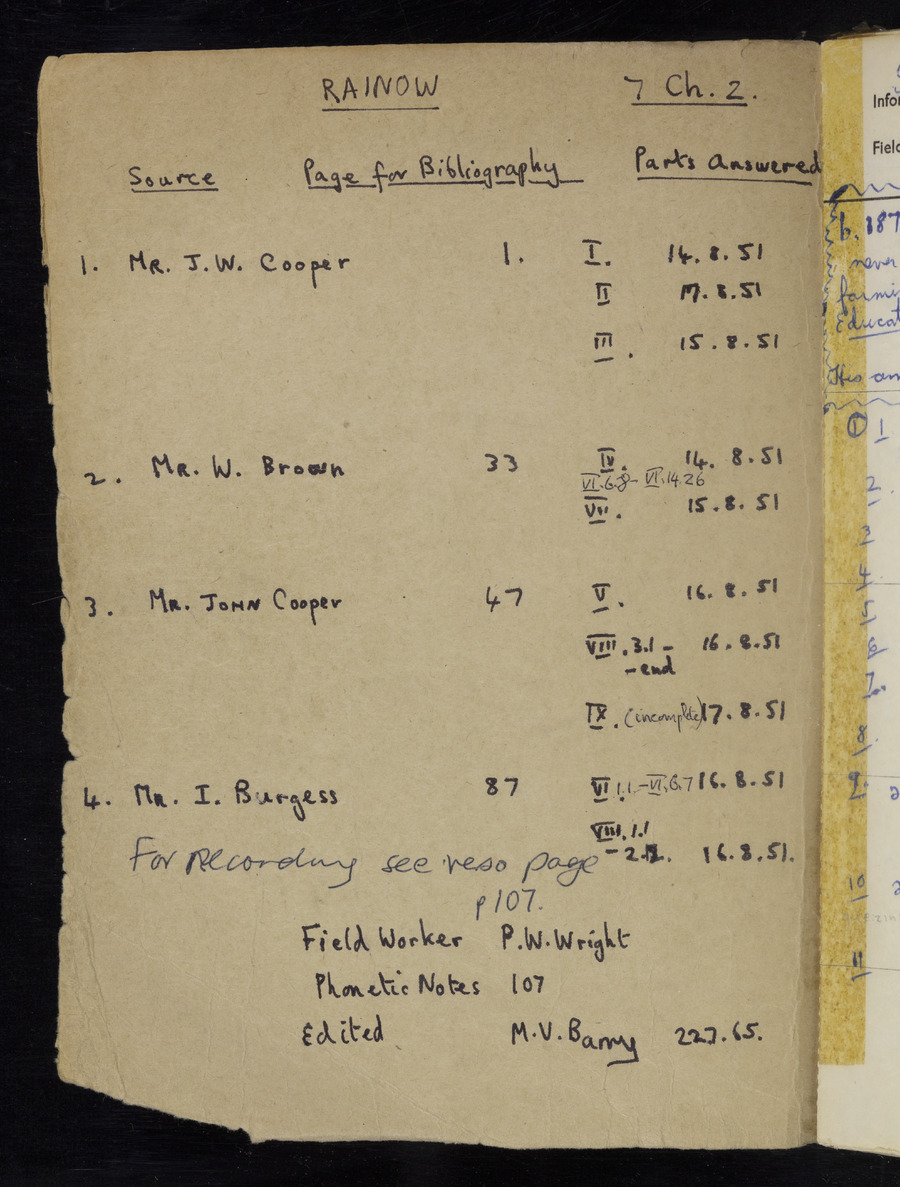 RAINOW 7 Ch. 2.
Source Page for Bibliography Parts Answered
1. MR. J.W. Cooper 1. I. 14.8.51
II 17.8.51
III. 15.8.51
2. MR. W. Brown 33 IV. 14. 8.51
VI.6.8- VI.14.26
VII. 15.8.51
3. MR. JOHN Cooper 47 V. 16.8.51
VIII.3.1- 16.8.51
-end
IX. (incomplete) 17.8.51
4. MR. I. Burgess 87 VI 1.1.-VI.6.7 16.8.51
VIII.1.1
-2. 16.8.51.
For Recording see verso page
p107.
Field Worker P.W.Wright
Phonetic Notes 107
Edited M.V.Barry 22.7.65.
Infor
Field
b. 187
never
farmi
Educat
His an
1 1
2.
3
4
5
6
7.
8
9.
10
11